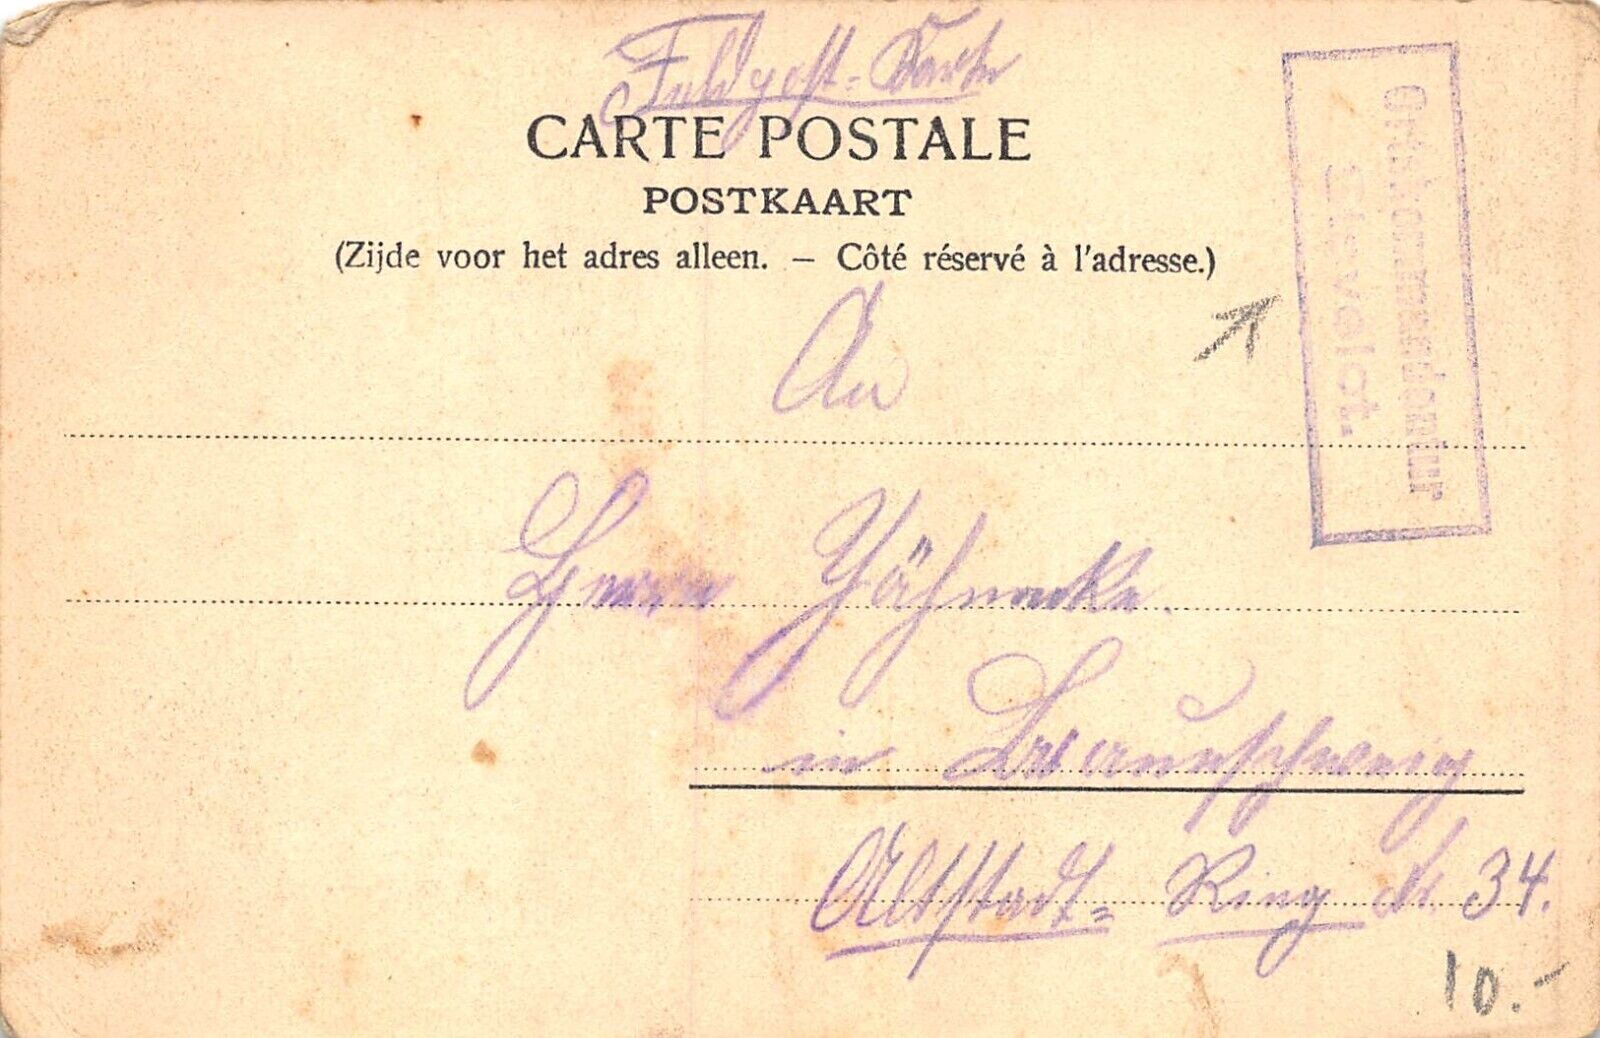 Feldpost-Karte
CARTE POSTALE
POSTKAART
(Zijde voor het adres alleen. – Côté réservé à l'adresse.)
Ortskommandantur
An
Herrn Jähnecke.
in Braunschweig
Altstadt= Ring Nr. 34.
10.-